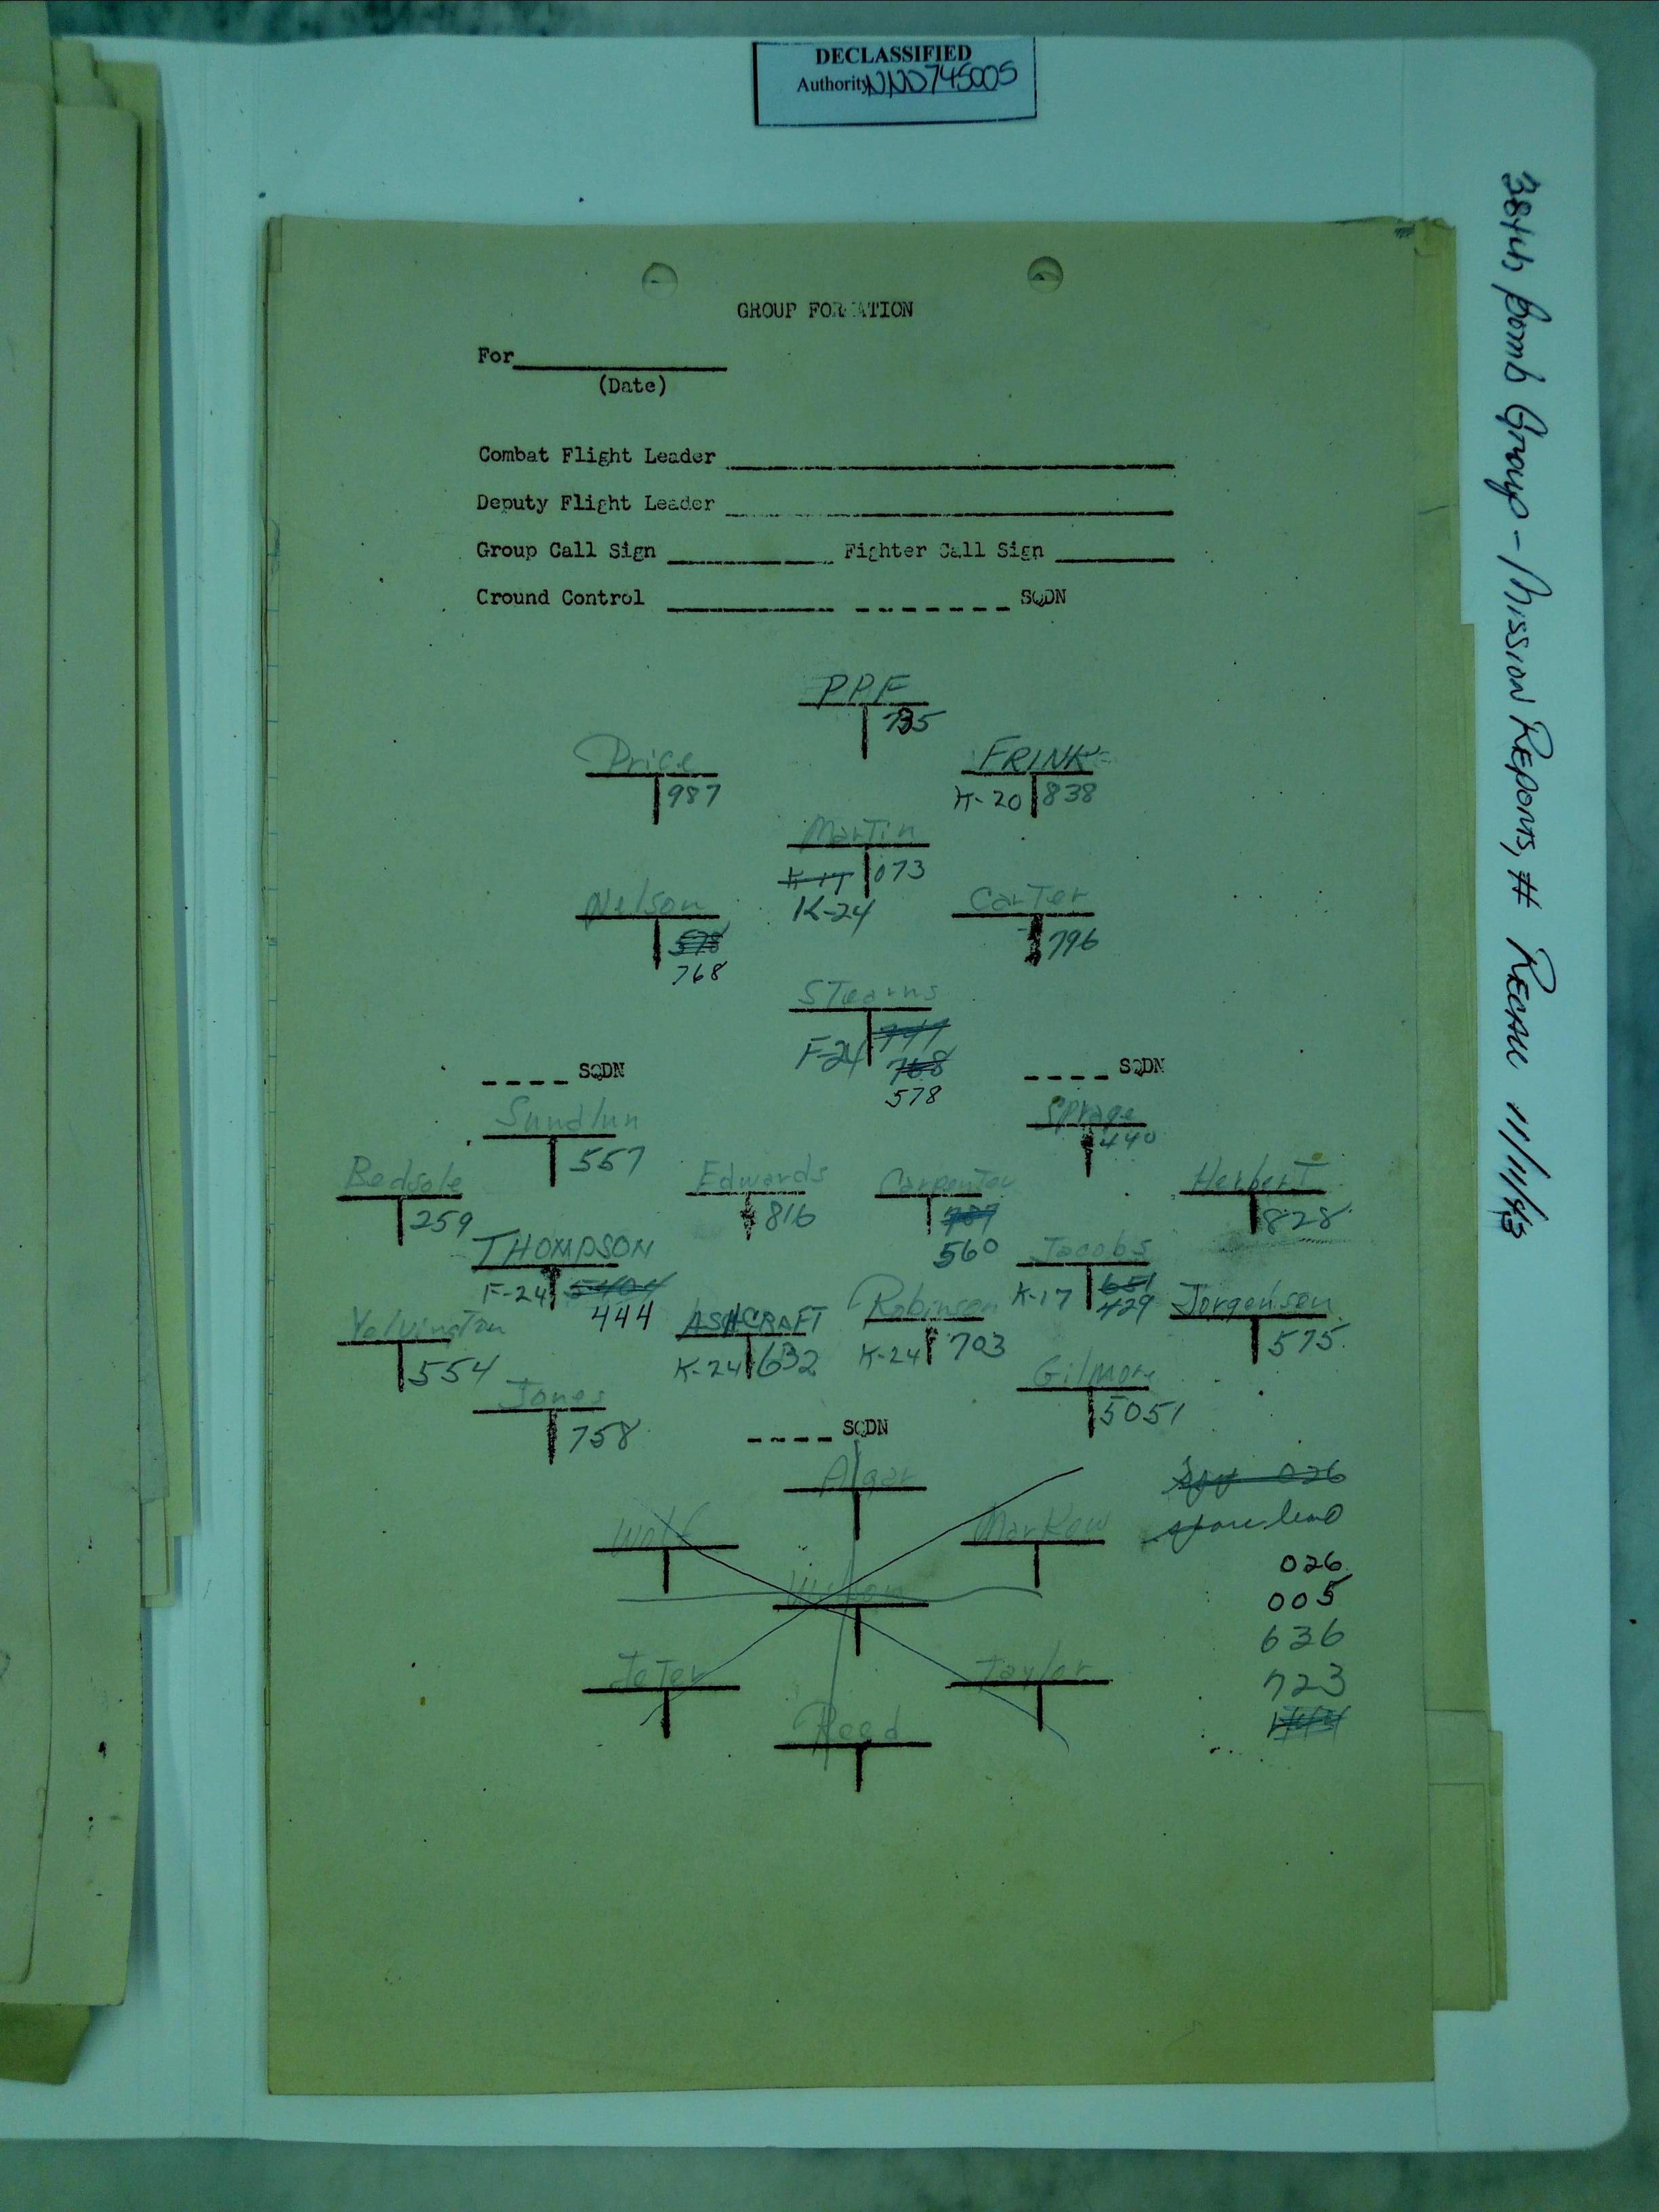 DECLASSIFIED
Authority NND745005
384th Bomb Group - Mission Reports, # Recall 11/11/43
GROUP FORMATION
For
(Date)
Combat Flight Leader
Deputy Flight Leader
Group Call Sign Fighter Call Sign
Cround Control SQDN
PPF
735
Price FRINK
987 K-20 838
Martin
K-17 073
K-24
Nelson Carter
578 796
768
Stearns
F-24 747
768
578
SQDN SQDN
Sundlun Sprage
557 440
Bedsole Edwards Carpenter Herbert
259 816 787 828
560
THOMPSON Jacobs
F-24 5404 K-17 651
444 429
Yelvington ASHCRAFT Robinson Jorgensen
554 K-24 632 K-24 703 575
Jones Gilmore
758 5051
SQDN
Algar
026
Wolf Markow
spare lead
026
005
636
Jeter Taylor
723
Reed